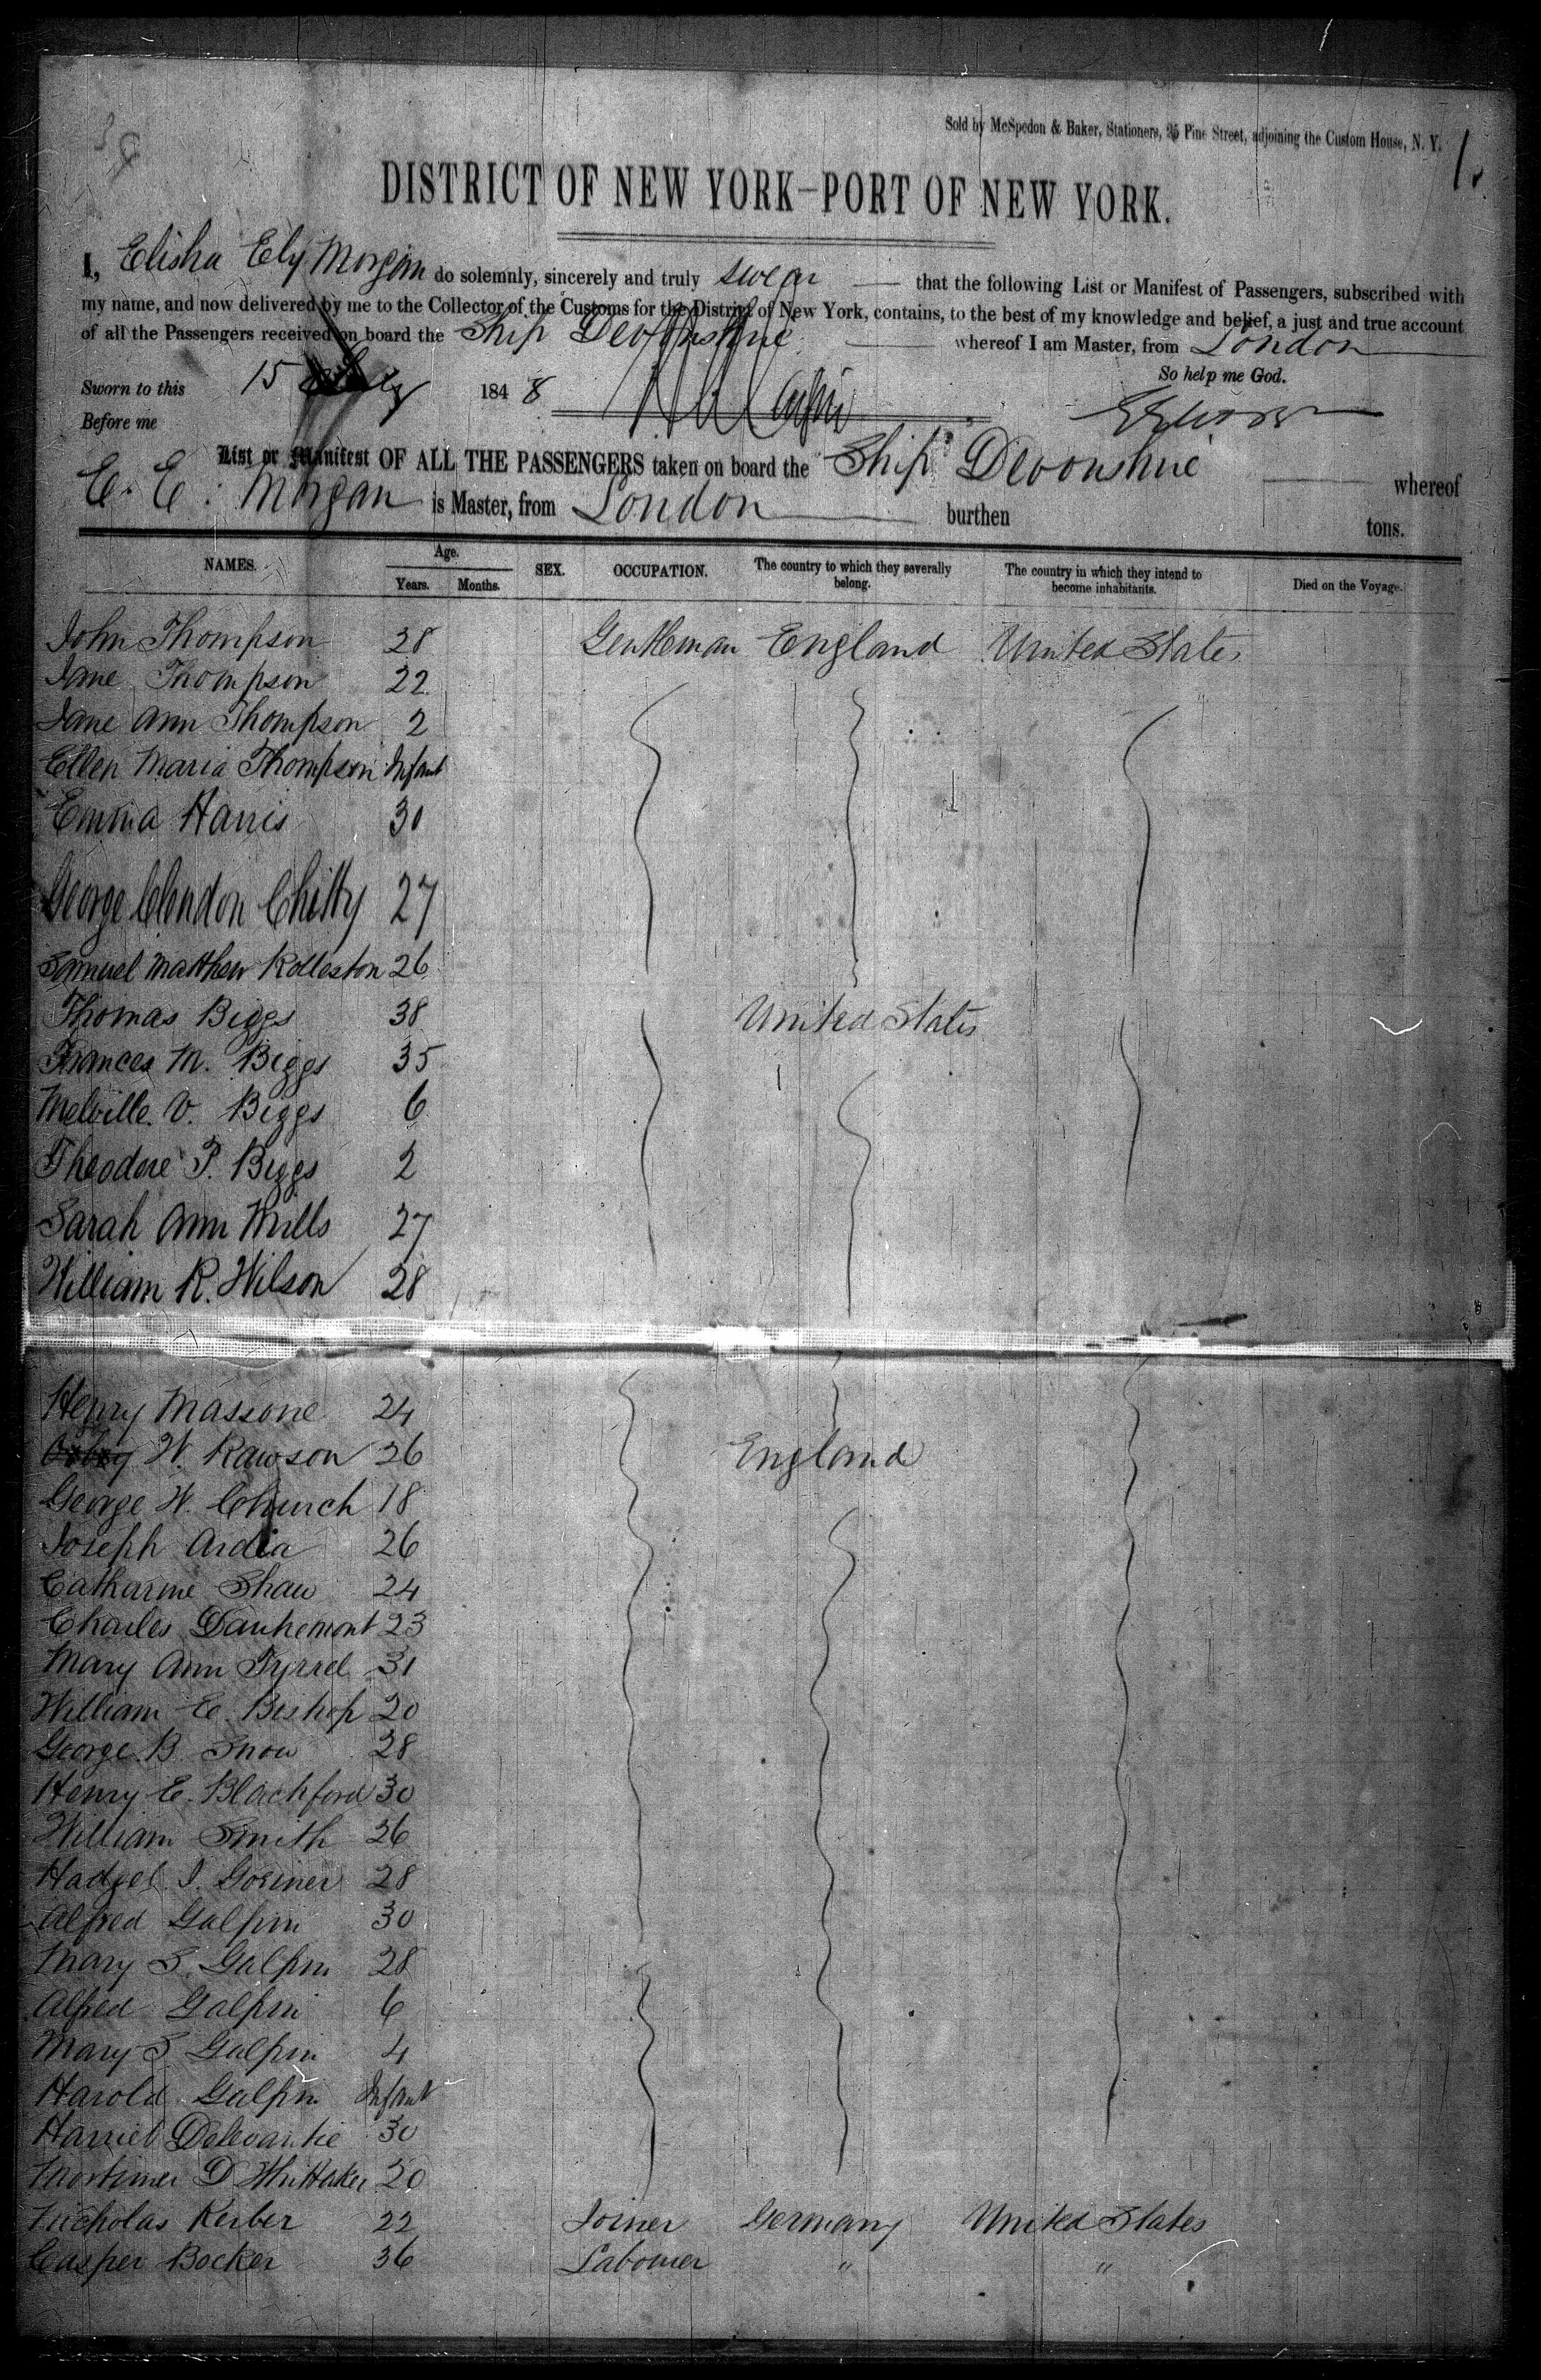 Sold by McSpedon & Baker, Stationers, 25 Pine Street, adjoining the Custom House, N. Y.
1.
DISTRICT OF NEW YORK—PORT OF NEW YORK.
I, Elisha Ely Morgan do solemnly, sincerely and truly swear that the following List or Manifest of Passengers, subscribed with
my name, and now delivered by me to the Collector of the Customs for the District of New York, contains, to the best of my knowledge and belief, a just and true account
of all the Passengers received on board the Ship Devonshire whereof I am Master, from London
So help me God.
Sworn to this 15 1848
Before me
List or Manifest OF ALL THE PASSENGERS taken on board the Ship Devonshire whereof
E. E. Morgan is Master, from London burthen tons.
NAMES. Age. Years. Months. SEX. OCCUPATION. The country to which they severally belong. The country in which they intend to become inhabitants. Died on the Voyage.
John Thompson 28 Gentleman England United States
Jane Thompson 22
Jane Ann Thompson 2
Ellen Maria Thompson Infant
Emma Harris 30
George Clendon Chitty 27
Samuel Matthew Rolleston 26
Thomas Biggs 38 United States
Frances M. Biggs 35
Melville V. Biggs 6
Theodore P. Biggs 2
Sarah Ann Mills 27
William R. Wilson 28
Henry Massone 24
W. Rawson 26 England
George W. Church 18
Joseph Ardia 26
Catharine Shaw 24
Charles 23
Mary Ann Tyrrel 31
William E. Bishop 20
George B. Snow 28
Henry E. Blachford 30
William Smith 26
28
Alfred Galpin 30
Mary S. Galpin 28
Alfred Galpin 6
Mary S Galpin 4
Harold Galpin Infant
Harriet Delevantie 30
Mortimer D Whittaker 20
Nicholas Kerber 22 Joiner Germany United States
Casper Bocker 36 Labourer " "